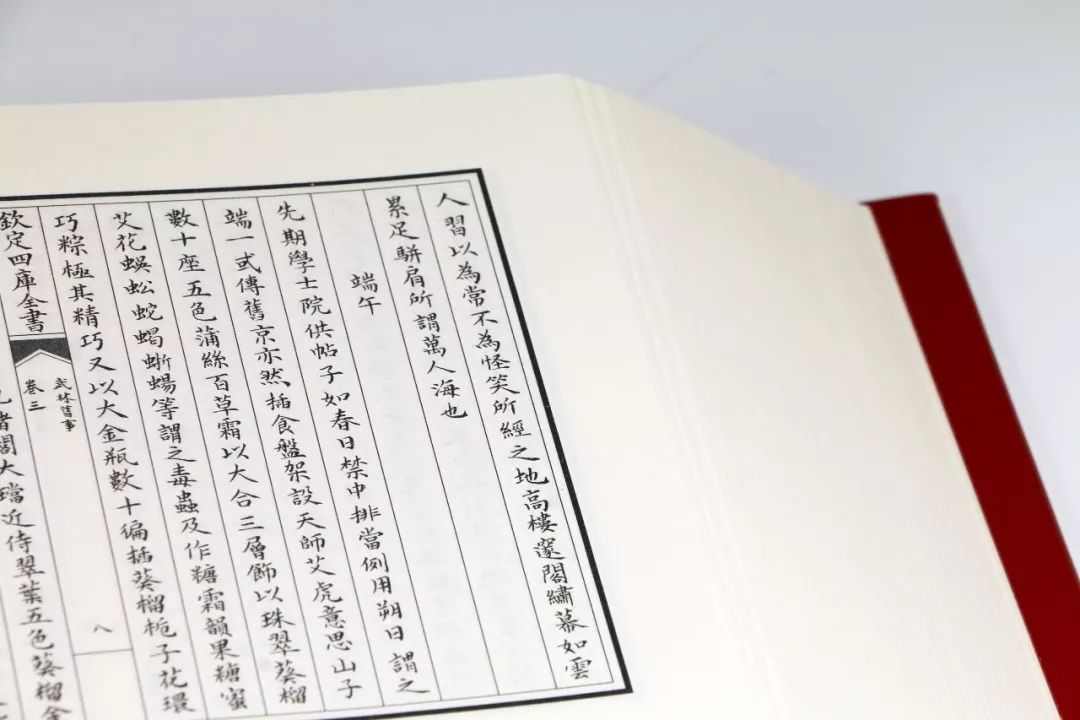 人習以為常不為怪笑所經之地高樓邃閣繡幕如雲
累足駢肩所謂萬人海也
端午
先期學士院供帖子如春日禁中排當例用朔日謂之
端一或傳舊京亦然插食盤架設天師艾虎意思山子
數十座五色蒲絲百草霜以大合三層飾以珠翠葵榴
艾花蜈蚣蛇蝎蜥蜴等謂之毒蟲及作糖霜韻果糖蜜
巧粽極其精巧又以大金瓶數十徧插葵榴梔子花環
欽定四庫全書
武林舊事
卷三
八
諸閣大璫近侍翠葉五色葵榴金